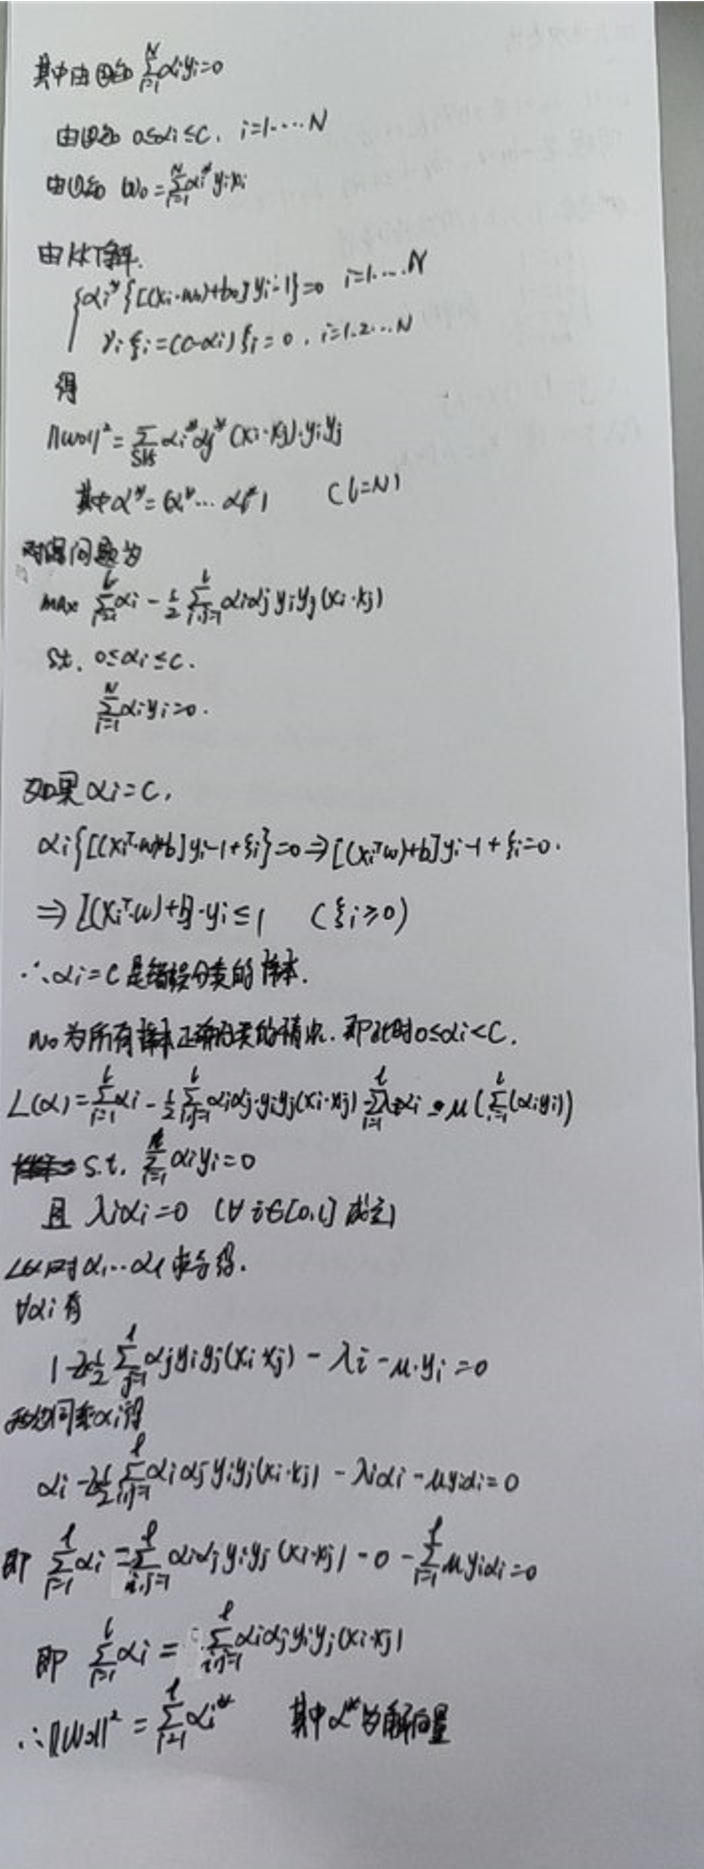 其中由②知 ∑_{i=1}^{N} αiyi=0
由③知 0≤αi≤C, i=1....N
由①知 W0=∑_{i=1}^{N} αi*yixi
由KKT条件.
{αi*{[(xi·w0)+b0]yi-1}=0 i=1....N
γiξi=(C-αi)ξi=0, i=1.2...N
得
||W0||²=∑ αi*αj*(xi·xj)·yiyj
其中α*=(α*...αl*) (l=N)
对偶问题为
max ∑_{i=1}^{l} αi - 1/2 ∑_{i,j=1}^{l} αiαjyiyj(xi·xj)
s.t. 0≤αi≤C.
∑_{i=1}^{N} αiyi=0.
如果αi=C,
αi{[(xiᵀ·w)+b]yi-1+ξi}=0⇒[(xiᵀw)+b]yi-1+ξi=0.
⇒[(xiᵀ·w)+b]·yi≤1 (ξi≥0)
∴αi=C是错误分类的样本.
W0为所有样本正确分类的情况.即此时0≤αi<C.
L(α)=∑_{i=1}^{l} αi - 1/2 ∑_{i,j=1}^{l} αiαj·yiyj(xi·xj) - ∑_{i=1}^{l} λiαi - μ(∑_{i=1}^{l}(αiyi))
s.t. ∑_{i=1} αiyi=0
且 λiαi=0 (∀i∈[0,l]成立)
L(α)对α1...αl求导得.
∀αi有
1 - ∑_{j=1}^{l} αjyiyj(xi·xj) - λi - μ·yi=0
同乘αi得
αi - ∑_{i,j=1}^{l} αiαjyiyj(xi·xj) - λiαi - μyiαi=0
即 ∑_{i=1}^{l} αi - ∑_{i,j=1}^{l} αiαjyiyj(xi·xj) - 0 - ∑_{i=1}^{l} μyiαi=0
即 ∑_{i=1}^{l} αi = ∑_{i,j=1}^{l} αiαjyiyj(xi·xj)
∴||W0||² = ∑_{i=1}^{l} αi* 其中α*为解向量